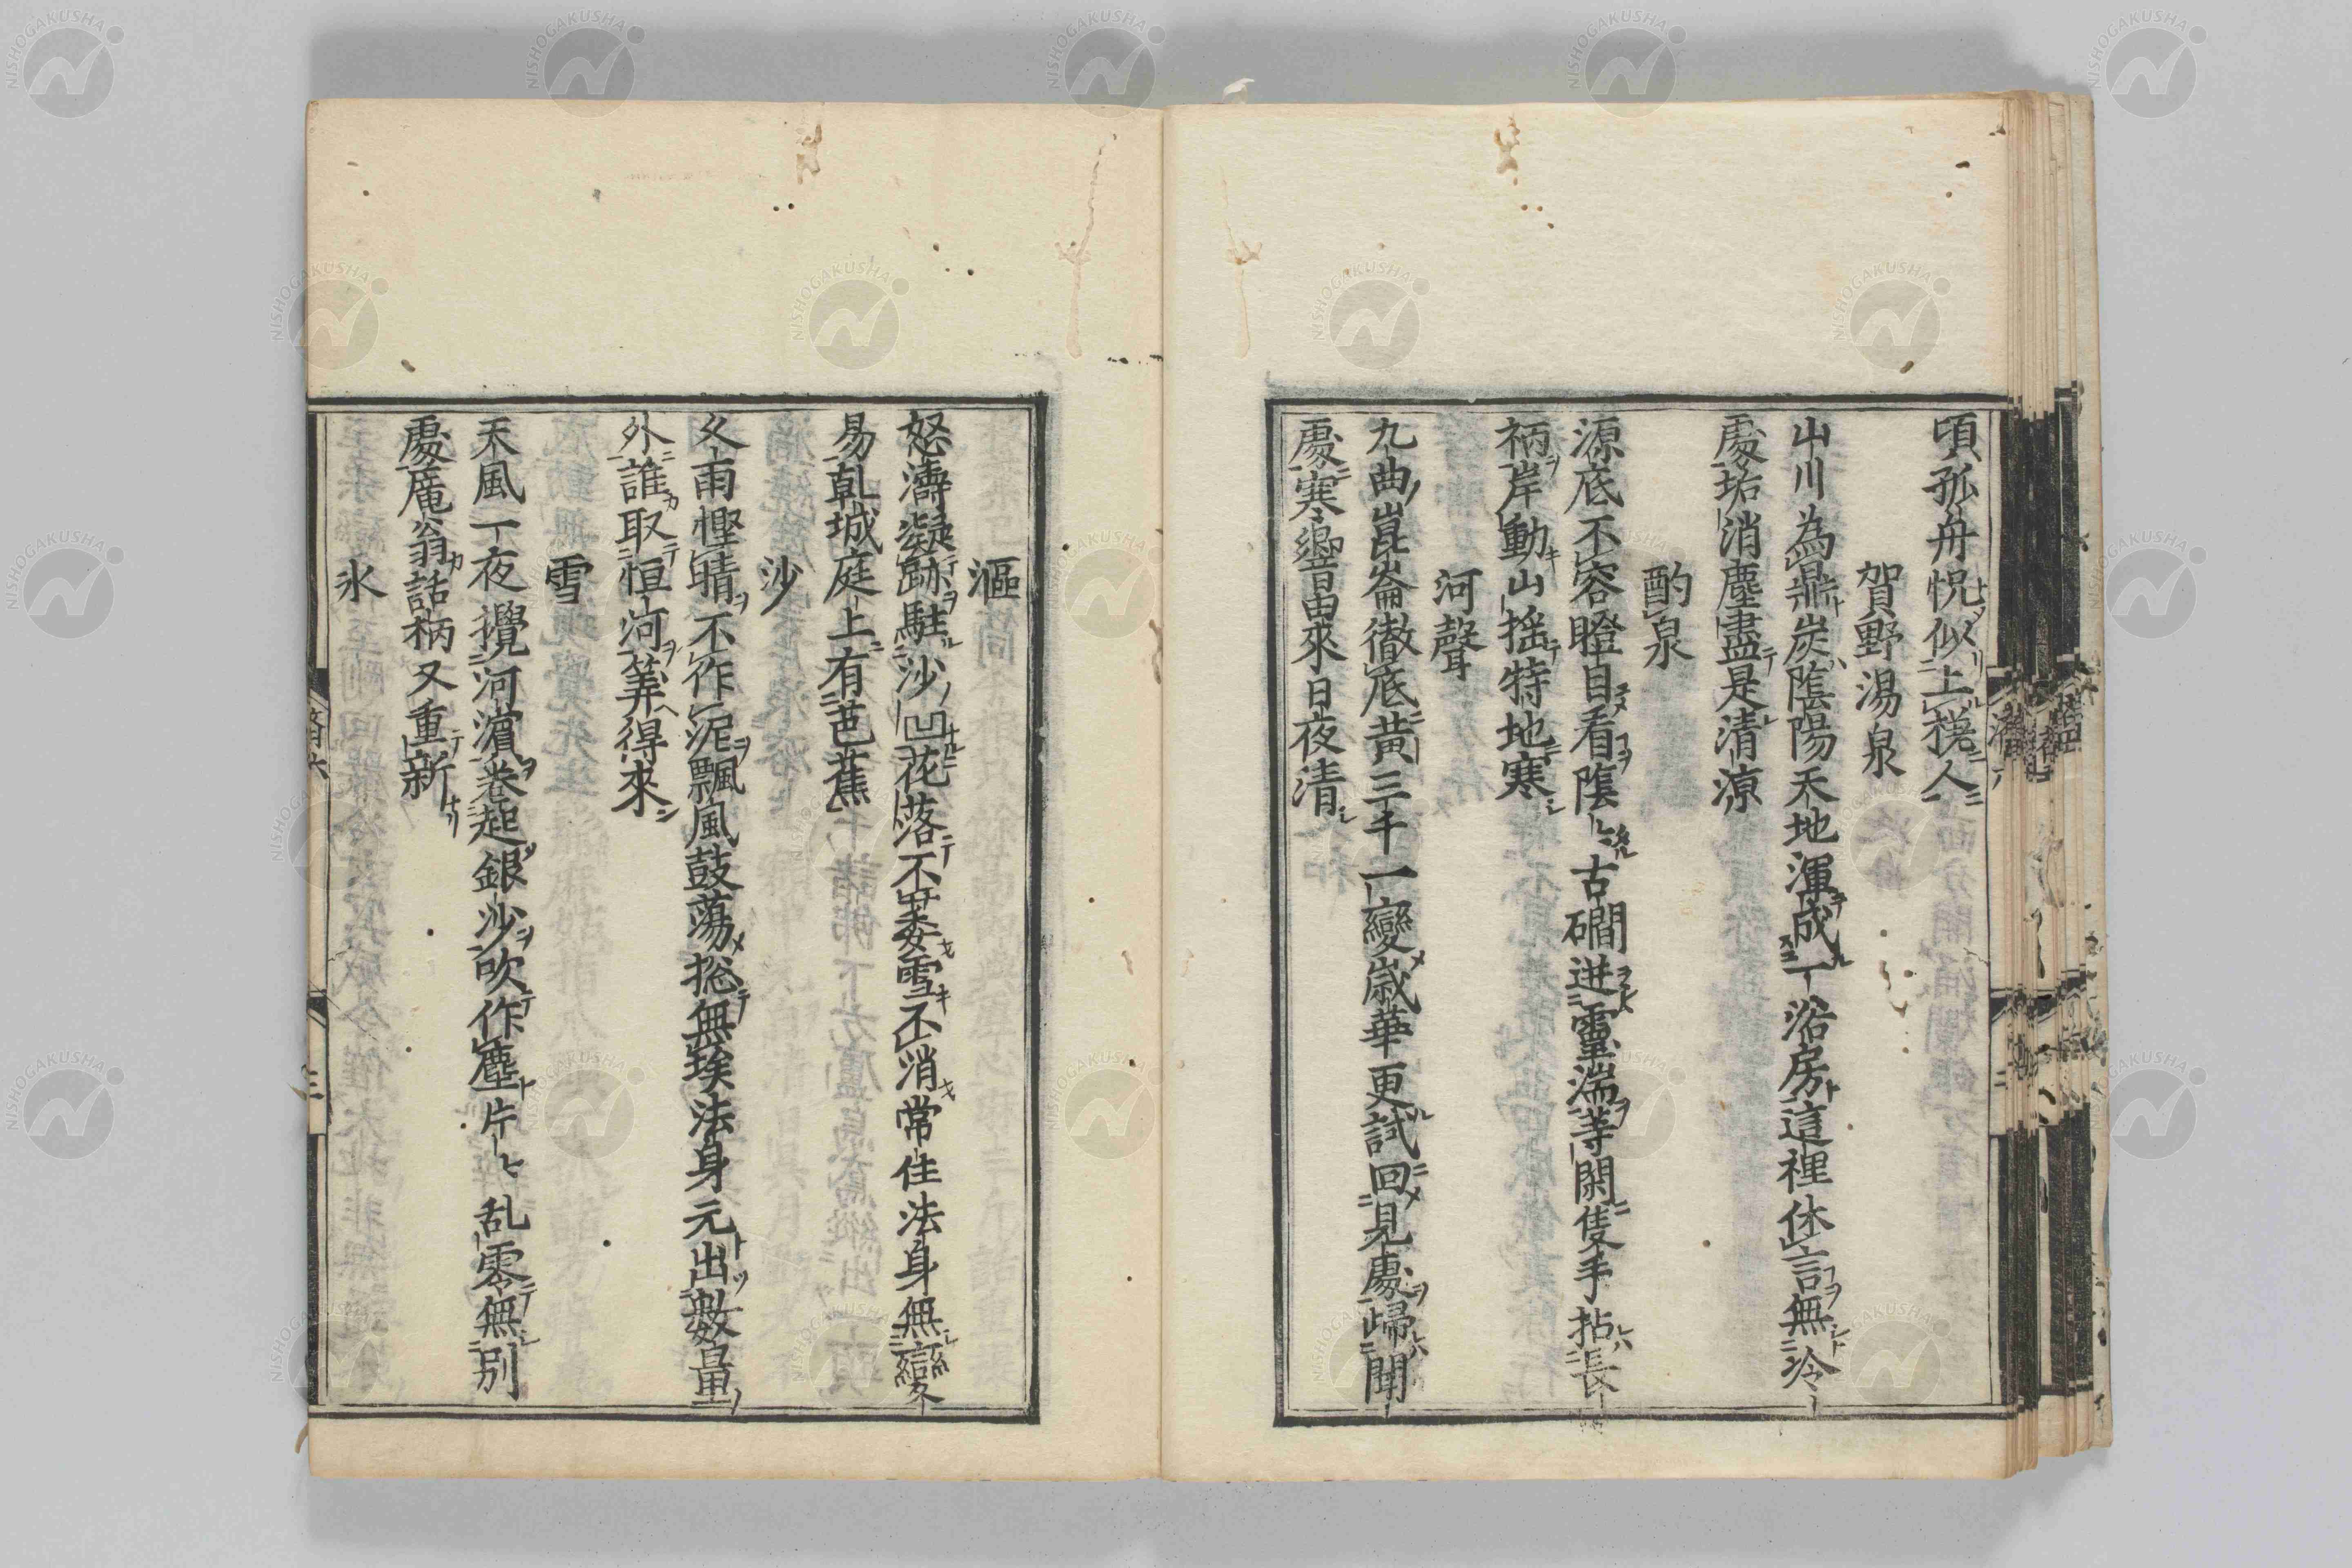 頃孤舟怳似上㨾人
賀野湯泉
山川為鼎炭陰陽天地渾成一浴房這裡休言無冷
處垢消塵盡是清凉
酌泉
源底不容瞪目看陰〻古磵迸靈湍等閑隻手拈長
柄岸動山揺特地寒
河聲
九曲崑崙徹底黄三千一變歳華更試回見處歸聞
處寒響由來日夜清
漚
怒濤凝跡駐沙凹花落不萎雪不消常住法身無變
易乹城庭上有芭蕉
沙
久雨慳晴不作泥飄風鼓蕩捴無埃法身元出數量
外誰取恒河筭得來
雪
天風一夜攪河濵巻起銀沙吹作塵片〻乱零無別
處龐翁話柄又重新
氷
三